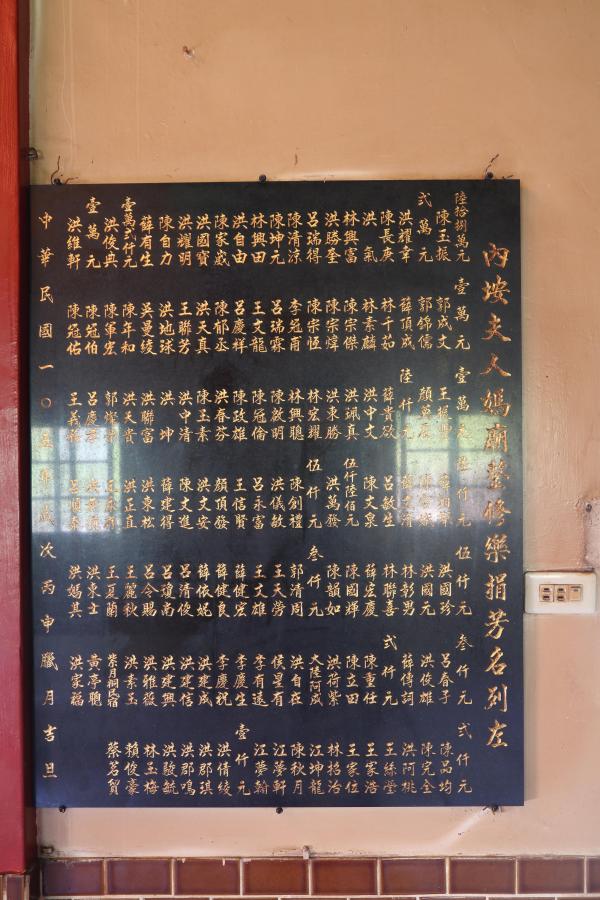 內垵夫人媽廟整修樂捐芳名列左
陸拾捌萬元
陳玉振
弍萬元
洪耀幸
陳長庚
洪氣
林興富
洪勝奎
呂瑞得
陳清涼
陳坤元
林興田
洪自由
陳家宬
洪國寶
洪耀明
陳自力
薛有生
壹萬弍仟元
洪俊典
壹萬元
洪維軒
壹萬元
郭成文
郭錦儒
薛頂成
林千茹
林素麟
陳宗傑
陳宗煒
陳宗恆
李冠甫
呂瑞霖
王文龍
呂慶祥
陳郁丞
洪天真
王聯芳
洪地球
吳曼綾
陳年和
陳軍宏
陳冠伯
陳冠佑
壹萬元
陸仟元
薛貴欽
洪中文
洪珮真
洪東勝
林宏耀
林興聰
陳啟明
陳冠倫
陳政雄
洪春芬
陳玉素
洪中清
洪坤
洪聯富
洪天貴
伍仟元
薛文清
呂敏生
陳文泉
伍仟陸佰元
洪萬發
伍仟元
陳創禮
洪儀敏
呂永富
王信賢
顏頂發
洪文安
陳文進
薛建得
洪東松
洪正直
伍仟元
洪國珍
洪國元
林彰男
林聯喜
薛宏慶
陳國輝
陳韻如
叁仟元
郭清周
王天勞
王文雄
薛健宏
薛健良
薛依妮
呂清俊
呂瓊尚
呂令賜
王麗秋
王夏蘭
洪東士
洪媽其
叁仟元
呂春子
洪俊雄
薛傳詞
弍仟元
陳重任
陳立田
洪荷紫
大陸阿成
洪自在
侯星有
李有遠
李慶生
李慶祝
洪建成
洪建信
洪建興
洪雅薇
洪素玉
紫月祠民宿
黃亭聰
洪家福
弍仟元
陳品均
陳完全
洪阿桃
王絲瑩
王家浩
王家位
林拾治
江坤龍
陳秋月
江夢軒
江夢翰
壹仟元
洪倩綾
洪郡琪
洪郡鳴
洪駿毓
林玉梅
賴俊豪
蔡茗賀
中華民國一０五年歲次丙申臘月吉旦